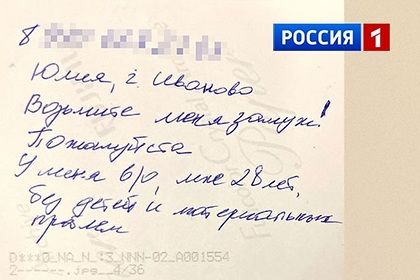 8
РОССИЯ 1
Юлия, г. Иваново
Возьмите меня замуж!
Пожалуйста
У меня в/о, мне 28 лет,
без детей и материальных
проблем
D***0_NA_N_*3_NNN-02_A001554
2------.jpg__4/36